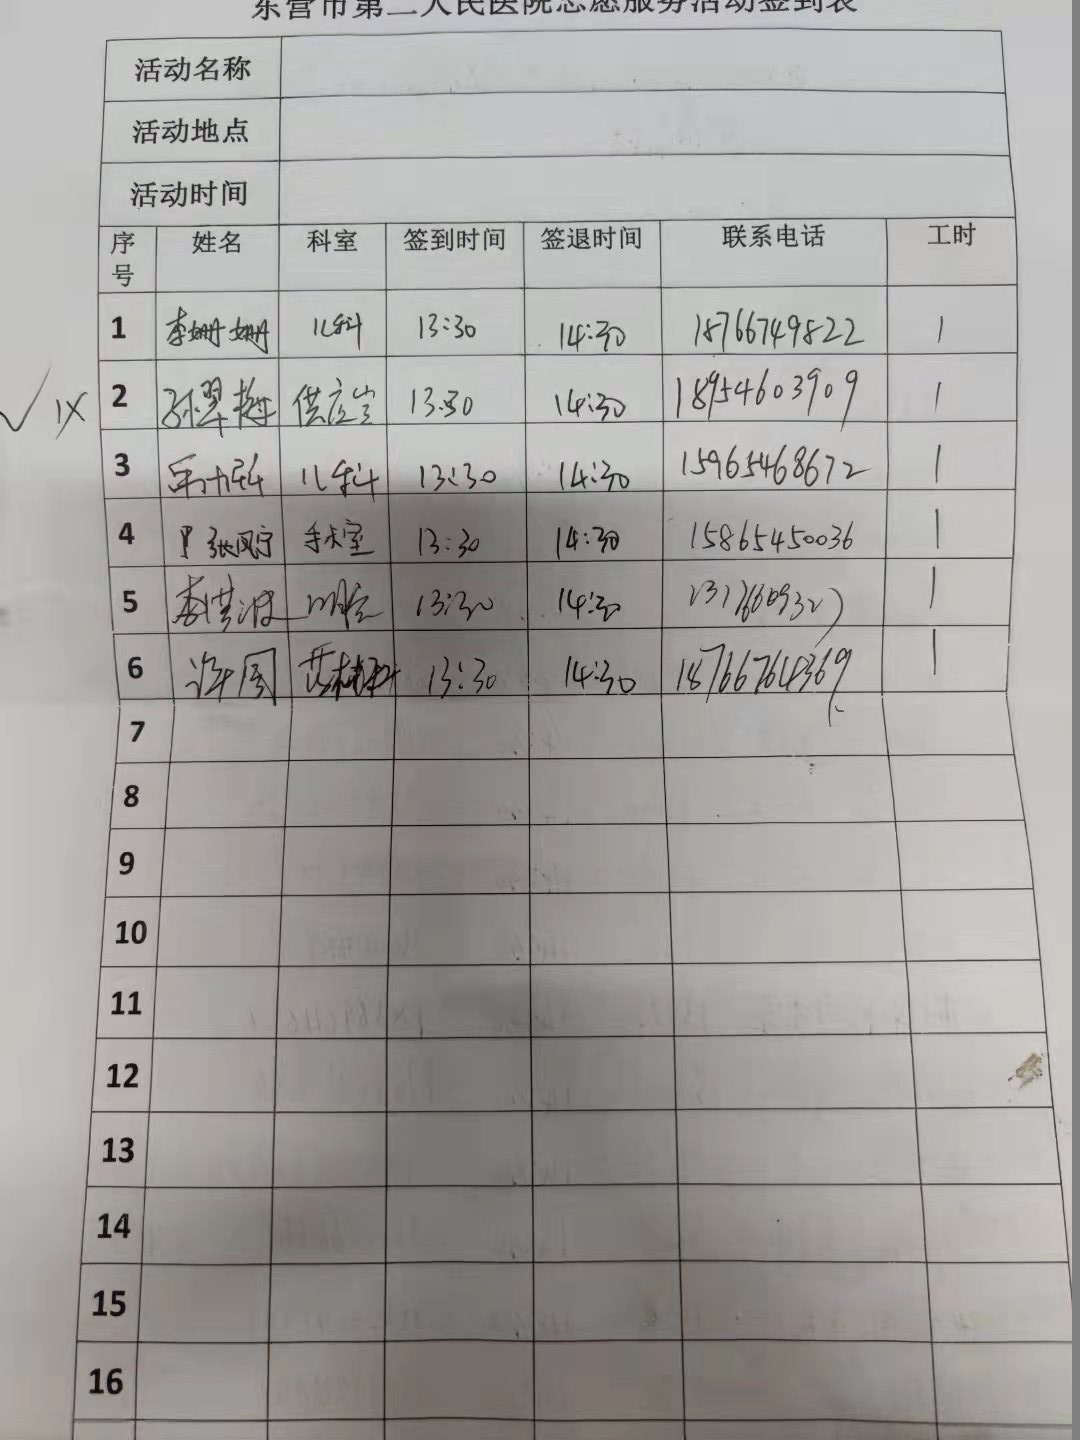 东营市第二人民医院志愿服务活动签到表
活动名称
活动地点
活动时间
序号 姓名 科室 签到时间 签退时间 联系电话 工时
1 李姗姗 儿科 13:30 14:30 18766749822 1
2 供应室 13:30 14:30 18954603909 1
3 儿科 13:30 14:30 15965468672 1
4 张凤宁 手术室 13:30 14:30 15865450036 1
5 李洪波 13:30 14:30 1
6 许周 13:30 14:30 18766764369 1
7
8
9
10
11
12
13
14
15
16